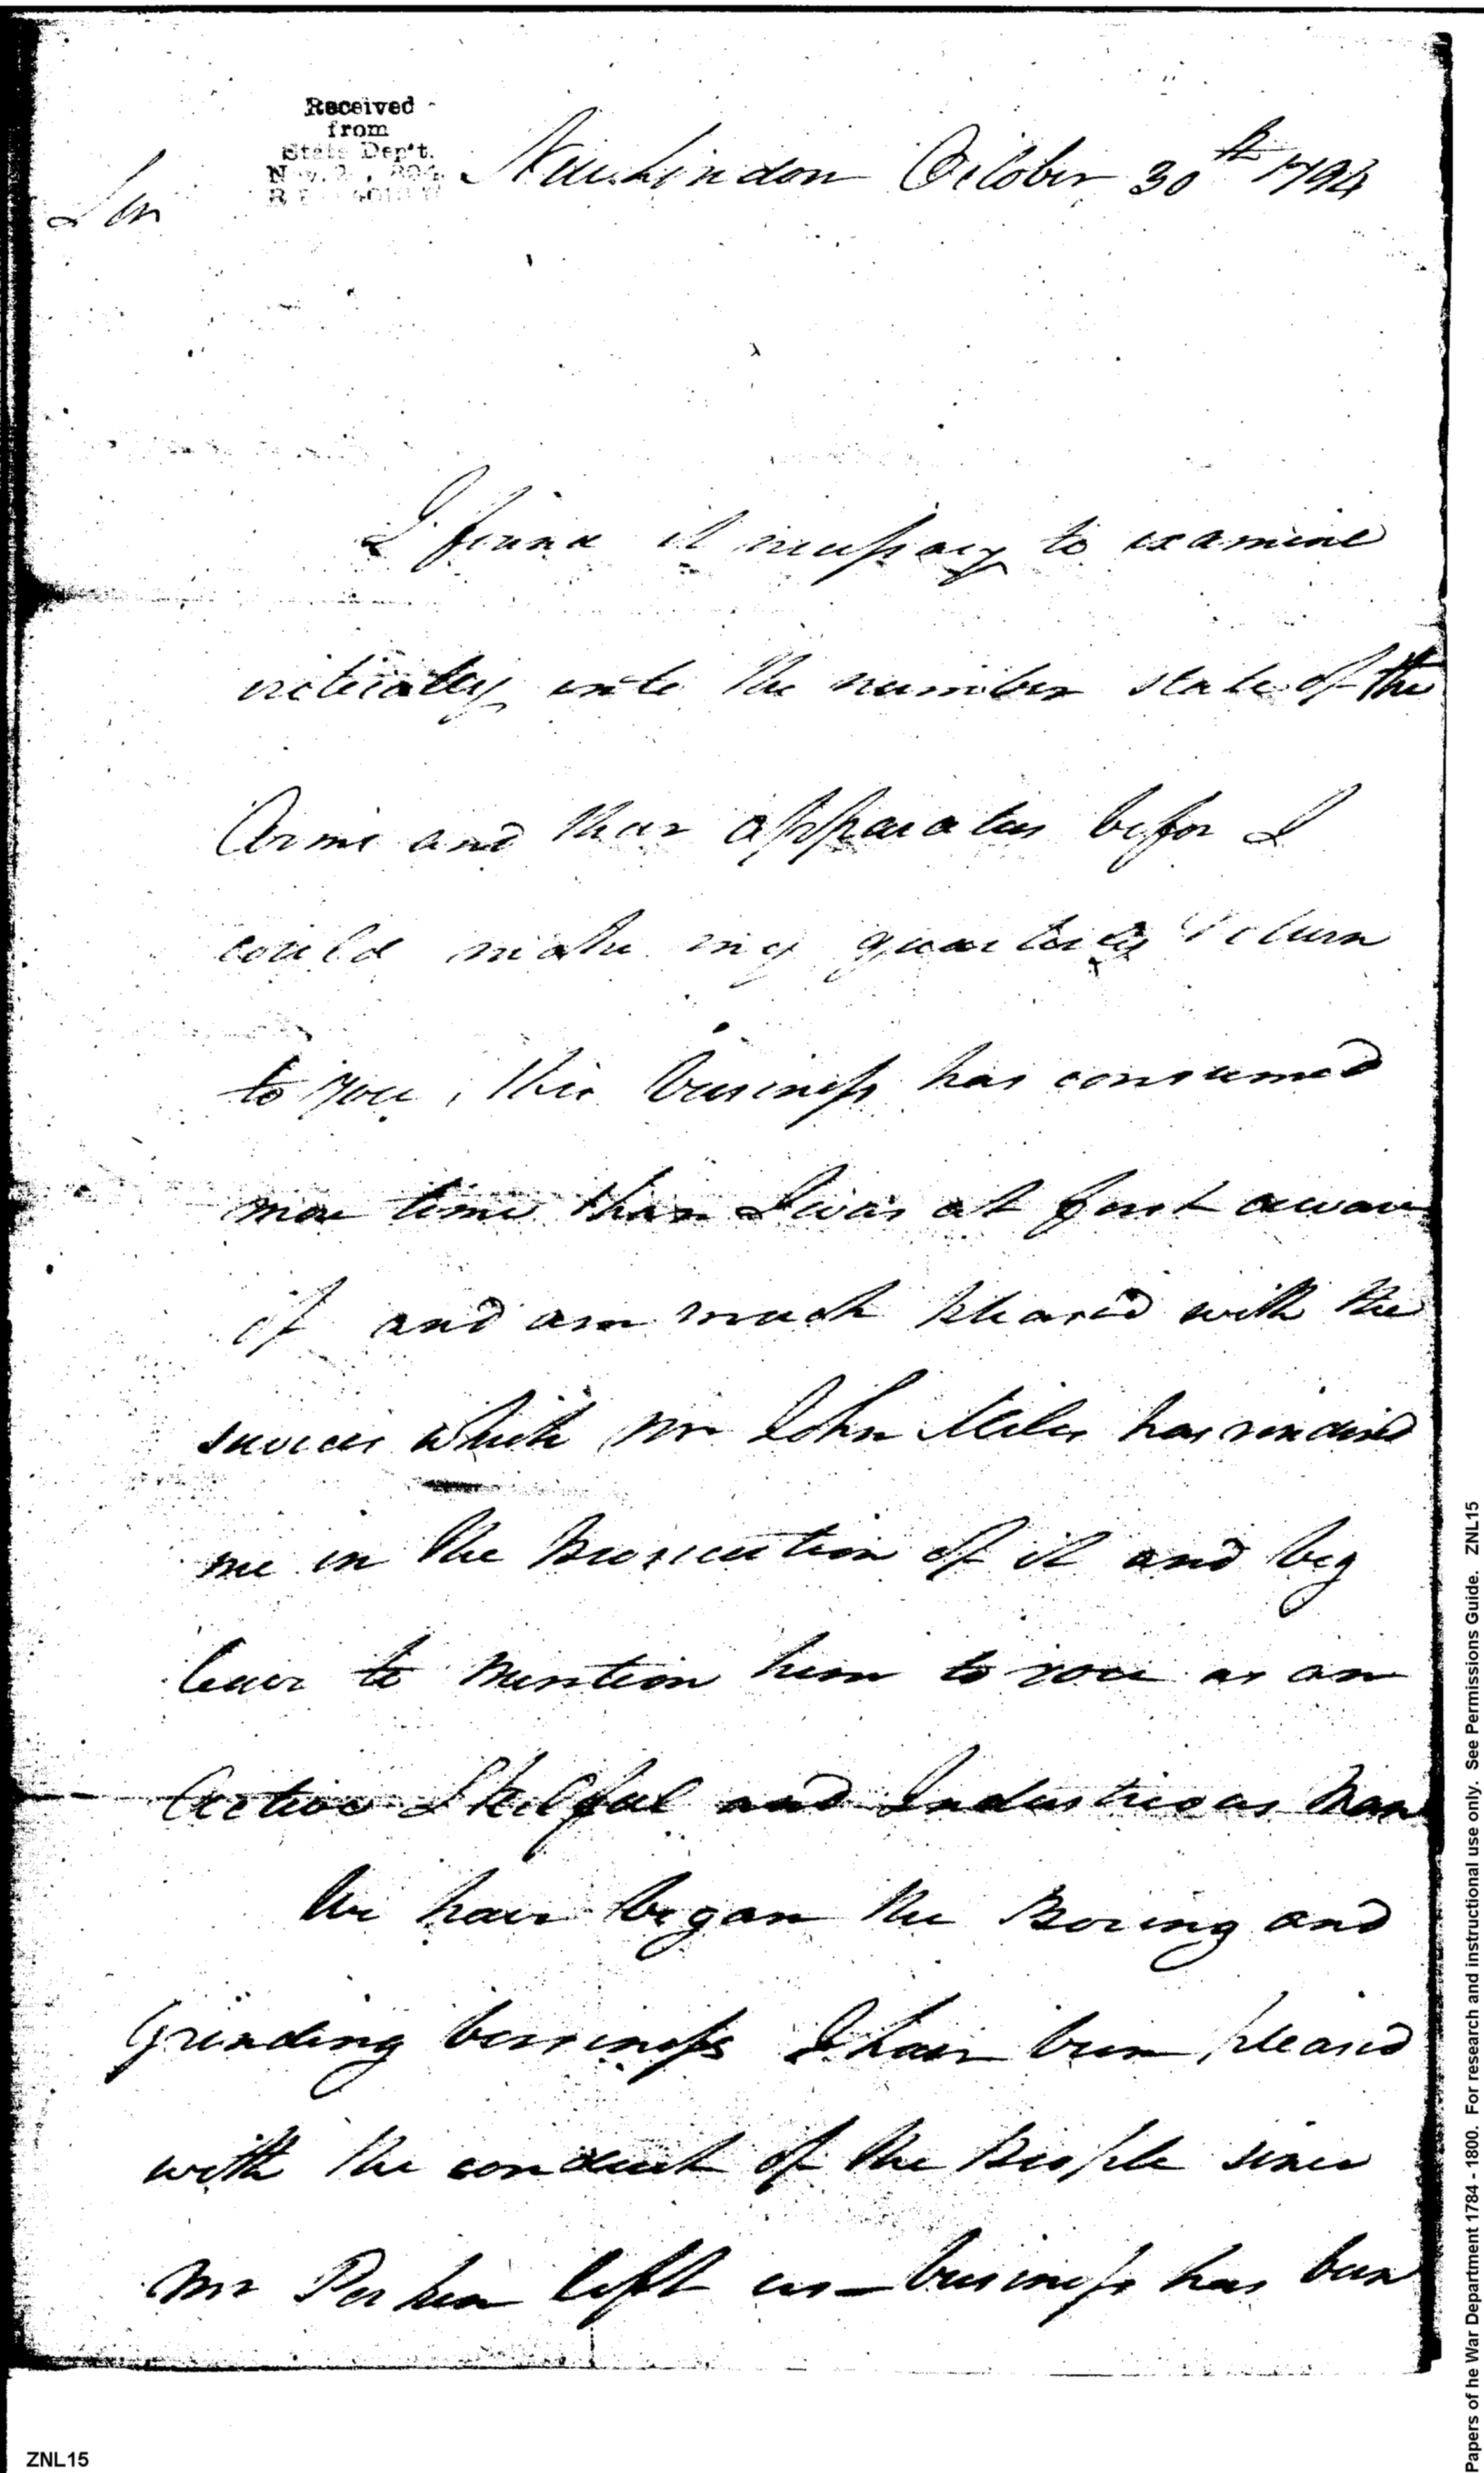 Received
from
State Dep't.
New London October 30th 1794
Sir
I found it necessary to examine
criticaly into the number state of the
Arms and thair apparatus befor I
could make my quarterly Return
to you, this business has consumed
more time than I was at first aware
of and am much pleased with the
services which Mr John Miles has rendired
me in the prosecution of it and beg
leave to mention him to you as an
Active Skilful and Industrious Man
We have began the Boring and
Grinding business I have been pleased
with the conduct of the People since
Mr Perkin left us — business has been
ZNL15
Papers of he War Department 1784 - 1800. For research and instructional use only. See Permissions Guide. ZNL15